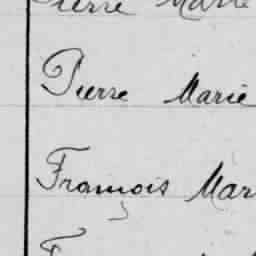 Pierre Marie
Pierre Marie
François Mar